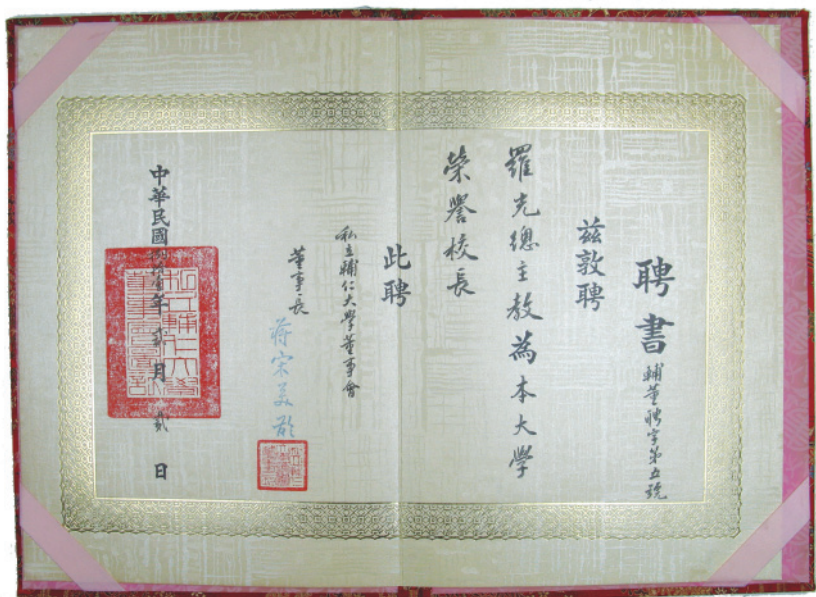 聘書
輔董聘字第五號
茲敦聘
羅光總主教為本大學
榮譽校長
此聘
私立輔仁大學董事會
董事長
蔣宋美齡
中華民國年貳月貳日